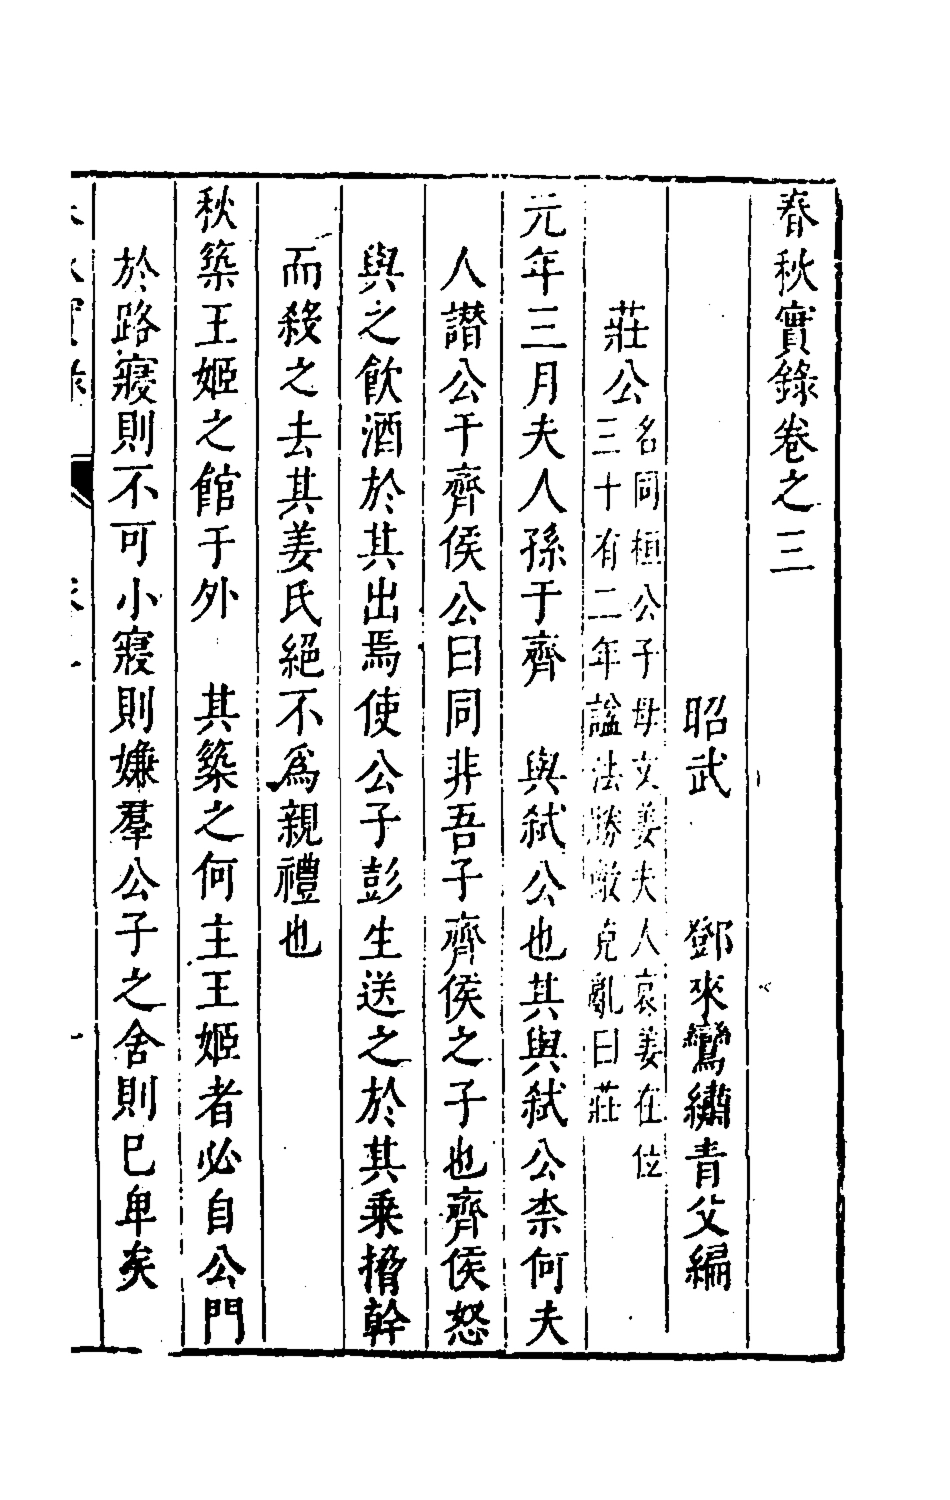 春秋實錄卷之三
昭武 鄧來鸞繡青父編
莊公
名同桓公子母文姜夫人哀姜在位
三十有二年謚法勝敵克亂曰莊
元年三月夫人孫于齊 與弒公也其與弒公柰何夫
人譖公于齊侯公曰同非吾子齊侯之子也齊侯怒
與之飲酒於其出焉使公子彭生送之於其乗搚幹
而殺之去其姜氏絕不爲親禮也
秋築王姬之館于外 其築之何主王姬者必自公門
於路寢則不可小寢則嫌羣公子之舍則巳卑矣